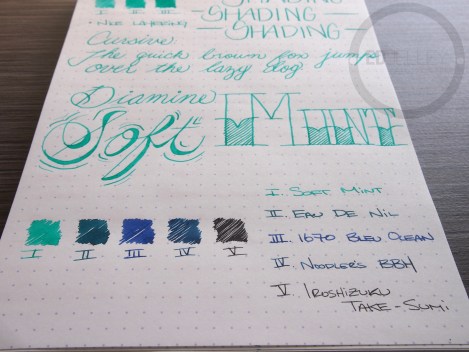 SHADING
I II III
SHADING
• NICE LAYERING
SHADING
Cursive
The quick brown fox jumps
over the lazy dog
Diamine
Soft Mint
I. SOFT MINT
II. EAU DE NIL
III. 1670 BLEU OCEAN
IV. NOODLER'S BBH
V. IROSHIZUKU
TAKE-SUMI
I II III IV V